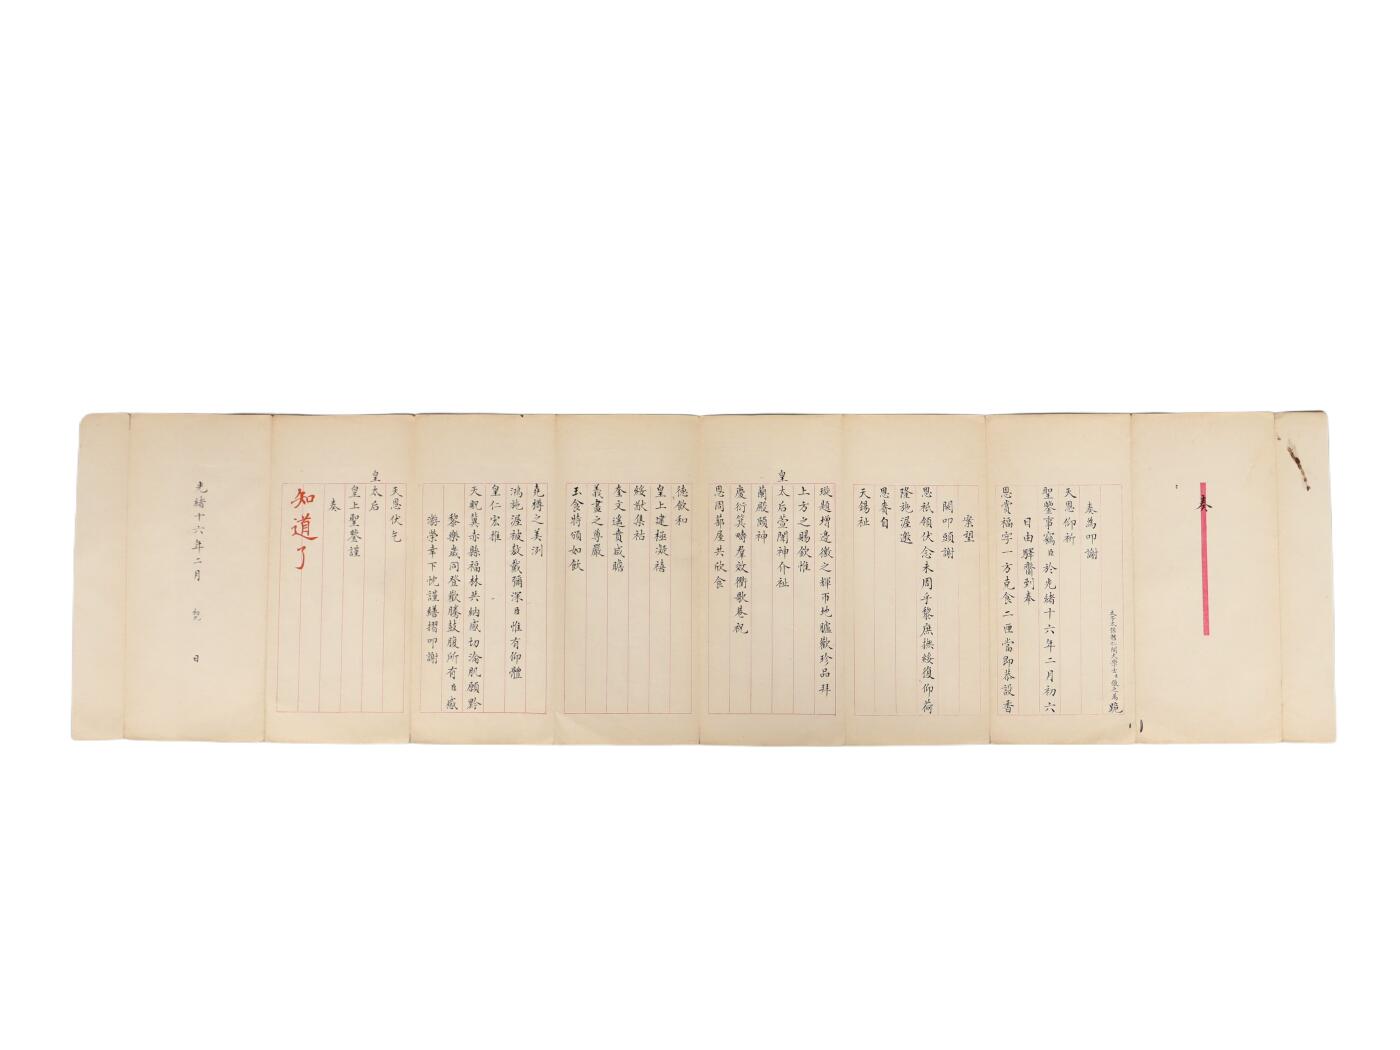 奏
太子太保體仁閣大學士臣張之萬跪
奏為叩謝
天恩仰祈
聖鑒事竊臣於光緒十六年二月初六
日由驛齎到奉
恩賞福字一方克食二匣當即恭設香
案望
闕叩頭謝
恩祇領伏念未周乎黎庶撫綏復仰荷
隆施渥邀
恩賚自
天錫祉
璇題增邊徼之輝帀地臚歡珍品拜
上方之賜欽惟
皇太后萱闈神介祉
蘭殿頤神
慶衍箕疇羣效衢歌巷祝
恩周蔀屋共欣食
德飲和
皇上建極凝禧
綏猷集祜
奎文遙賁咸瞻
義畫之尊嚴
玉食特頒如飲
堯樽之美洌
鴻施渥被欽戴彌深臣惟有仰體
皇仁宏推
天貺冀赤縣福林共納感切淪肌願黔
黎樂歲同登歡騰鼓腹所有臣感
游榮幸下忱謹繕摺叩謝
天恩伏乞
皇太后
皇上聖鑒謹
奏
知道了
光緒十六年二月 初九 日